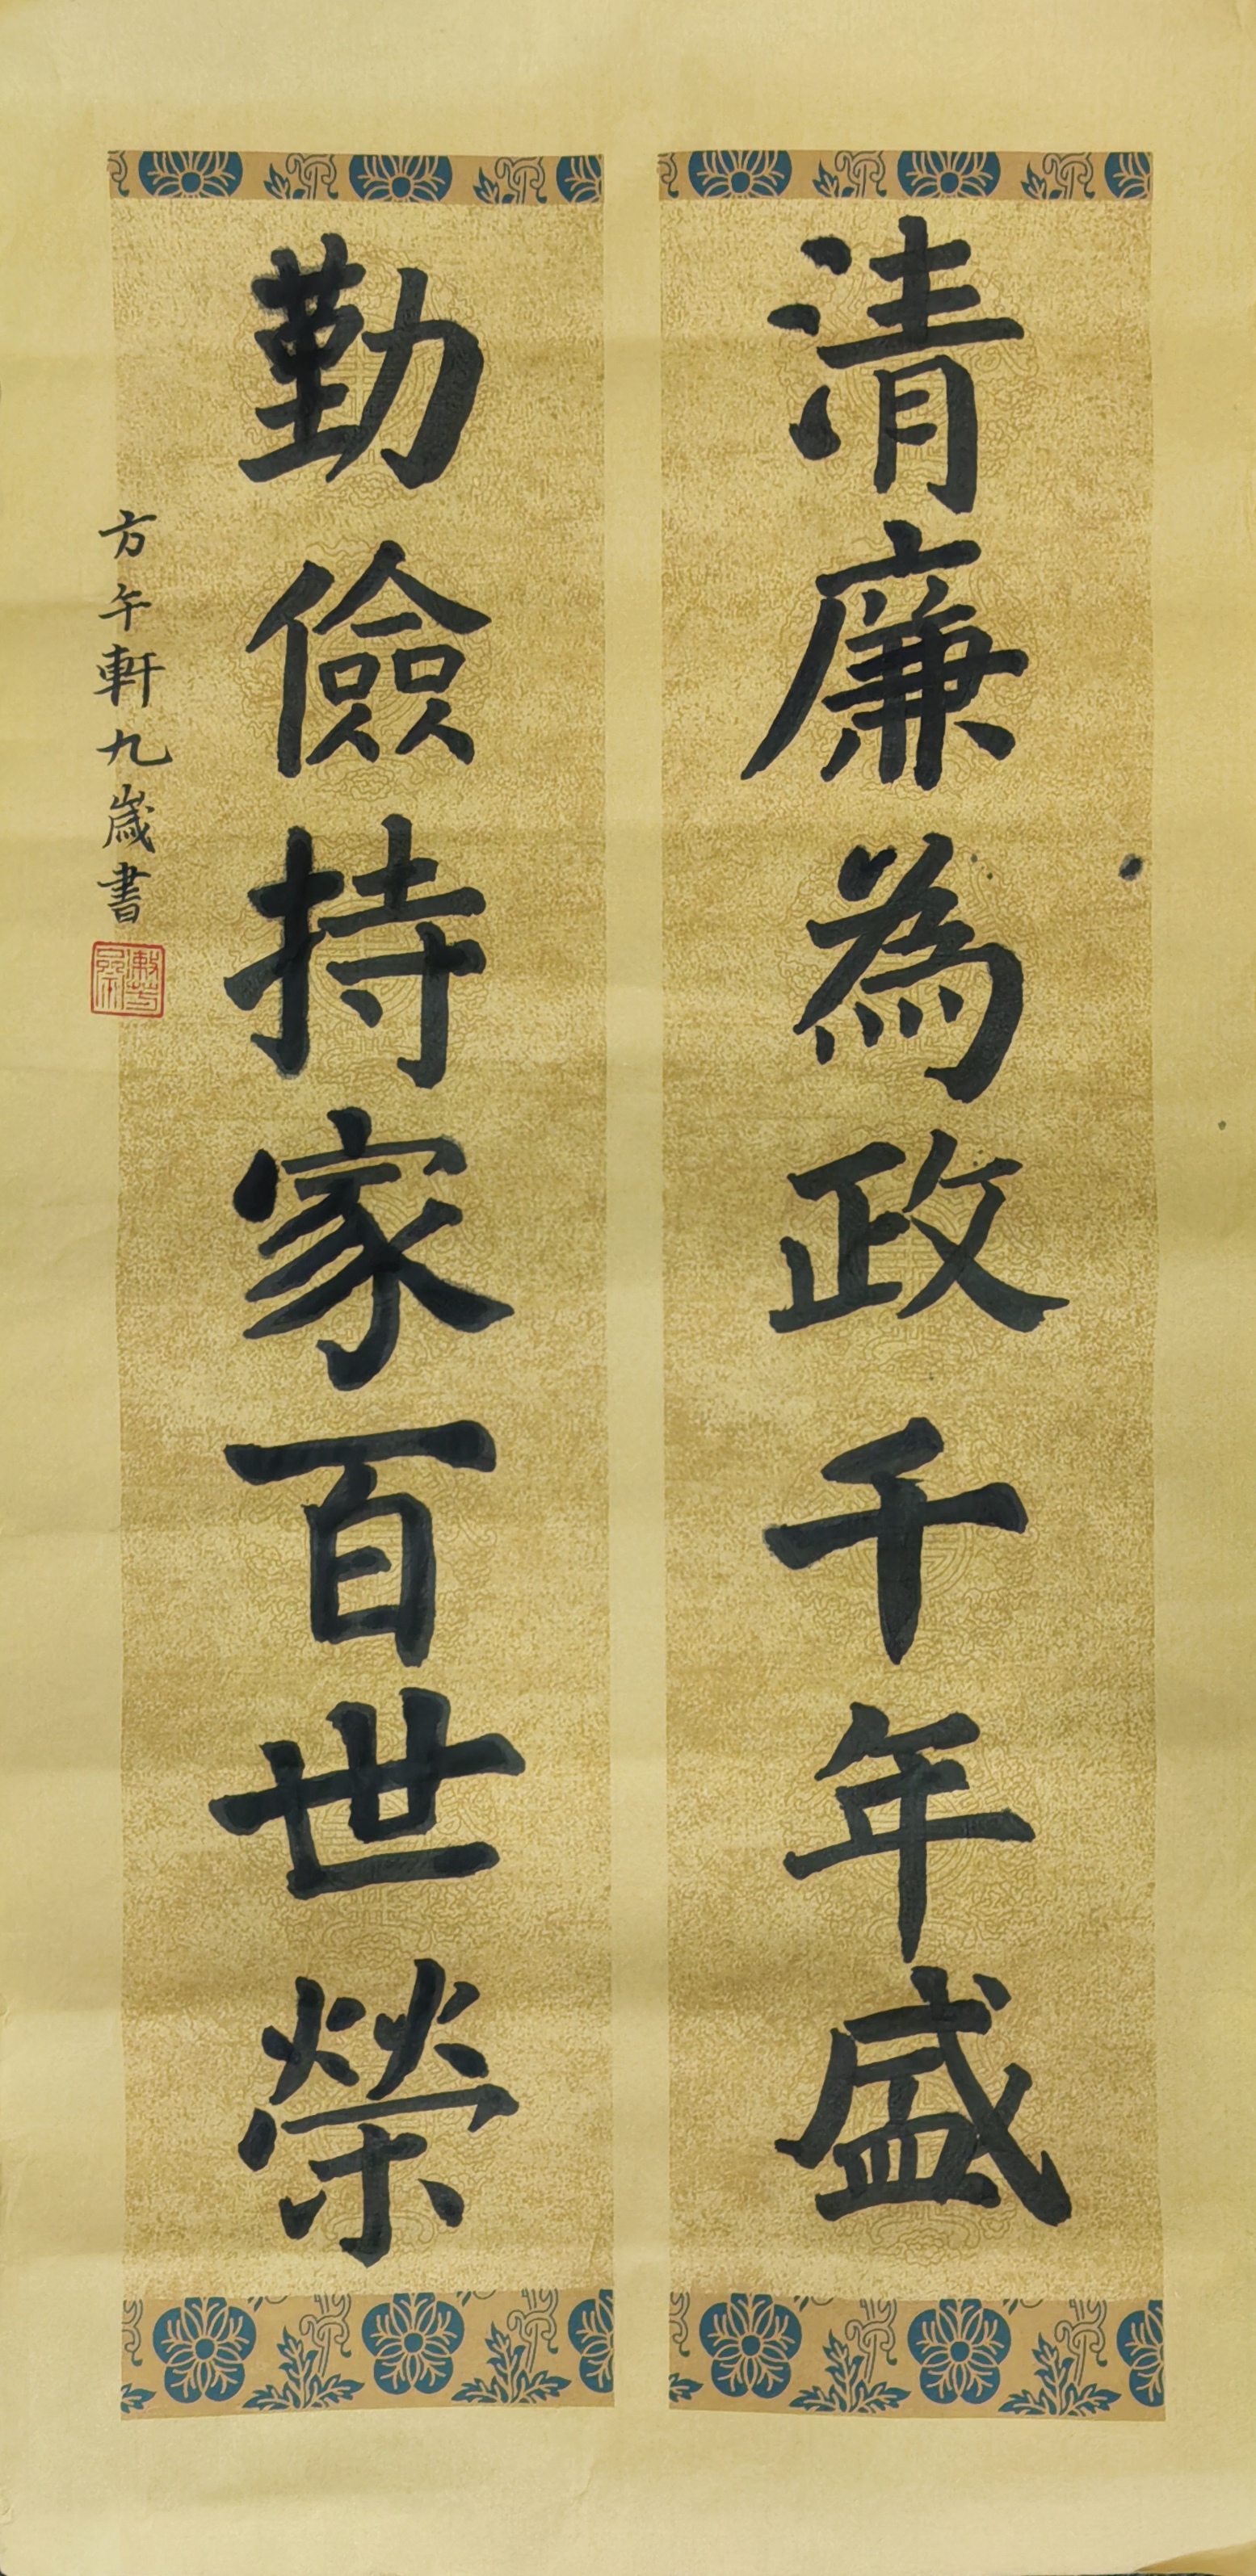 清廉為政千年盛
勤儉持家百世榮
方午軒九歲書